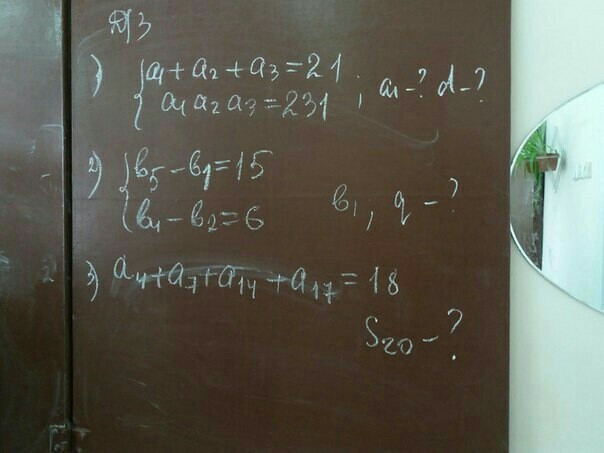 Д/З
1) { a₁ + a₂ + a₃ = 21
a₁ a₂ a₃ = 231 ; a₁ - ? d - ?
2) { b₅ - b₁ = 15
b₄ - b₂ = 6 b₁, q - ?
3) a₄ + a₇ + a₁₄ + a₁₇ = 18
S₂₀ - ?